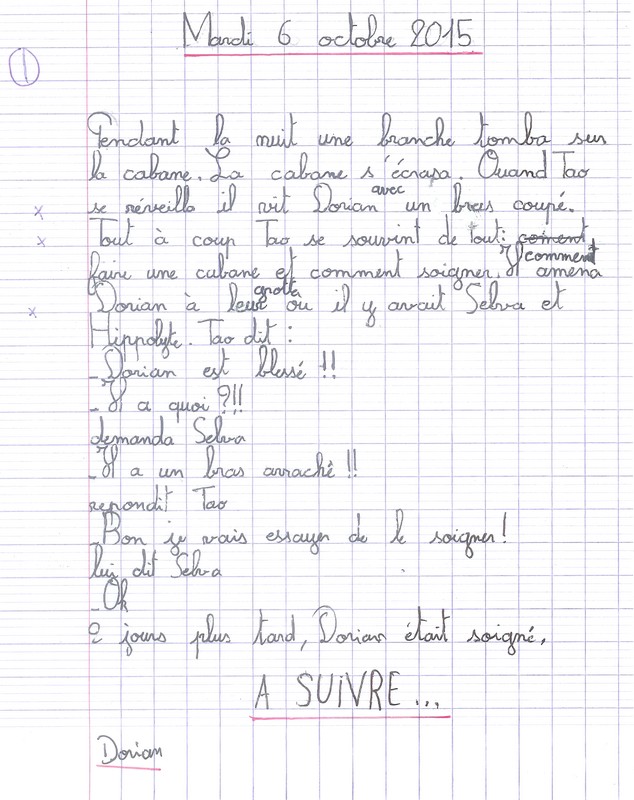 Mardi 6 octobre 2015
1
Pendant la nuit une branche tomba sur
la cabane. La cabane s'écrasa. Quand Tao
se réveilla il vit Dorian avec un bras coupé.
Tout à coup Tao se souvint de tout: coment comment
faire une cabane et comment soigner. Il amena
Dorian à leur grotte ou il y avait Selva et
Hippolyte. Tao dit :
-Dorian est blessé !!
-Il a quoi ?!!
demanda Selva
-Il a un bras arraché !!
repondit Tao
-Bon je vais essayer de le soigner!
lui dit Selva
-Ok
2 jours plus tard, Dorian était soigné,
A SUIVRE...
Dorian